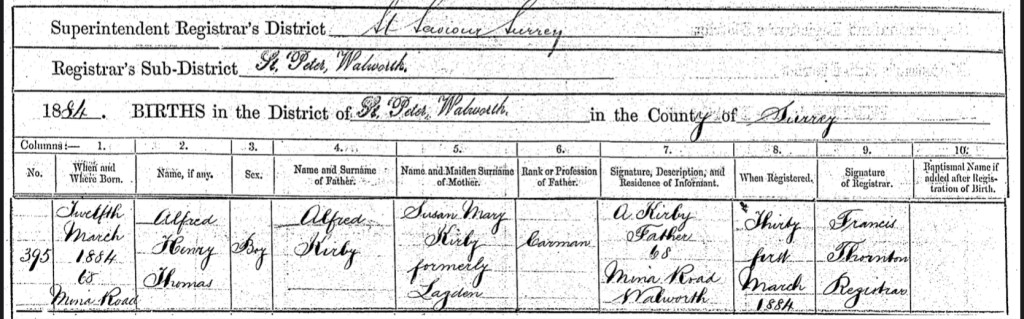 Superintendent Registrar's District St Saviour Surrey
Registrar's Sub-District St. Peter, Walworth.
1884. BIRTHS in the District of St. Peter, Walworth. in the County of Surrey
Columns:— 1. 2. 3. 4. 5. 6. 7. 8. 9. 10.
No. When and Where Born. Name, if any. Sex. Name and Surname of Father. Name and Maiden Surname of Mother. Rank or Profession of Father. Signature, Description, and Residence of Informant. When Registered. Signature of Registrar. Baptismal Name if added after Registration of Birth.
395 Twelfth March 1884 68 Mina Road
Alfred Henry Thomas
Boy
Alfred Kirby
Susan Mary Kirby formerly Lagden
Carman
A. Kirby Father 68 Mina Road Walworth
Thirty first March 1884
Francis Thornton Registrar